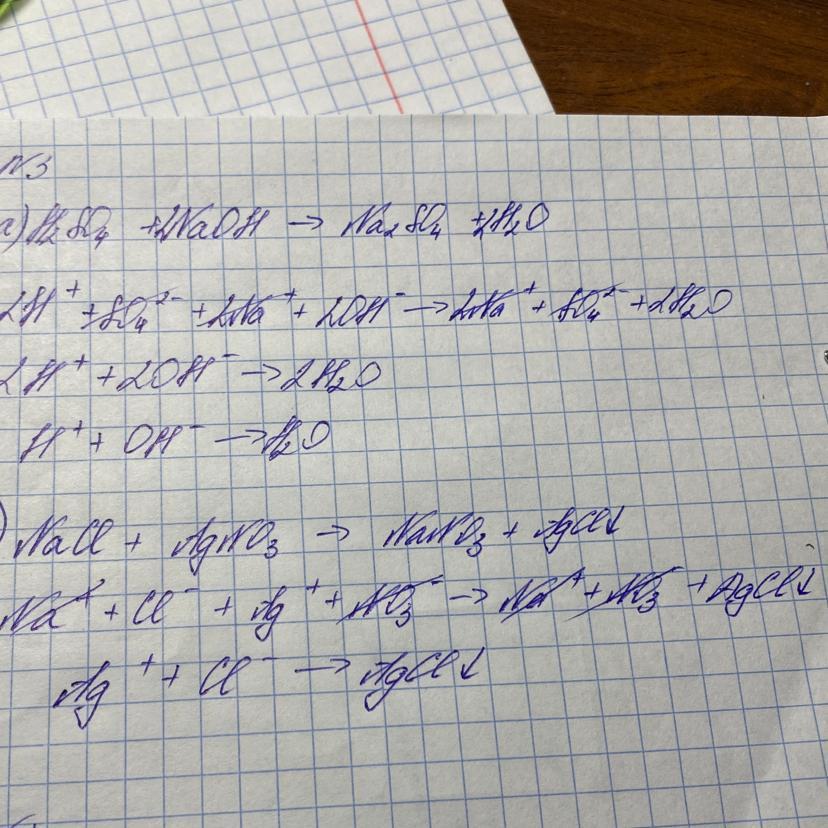 N3
а) H₂SO₄ + 2NaOH → Na₂SO₄ + 2H₂O
2H⁺ + SO₄²⁻ + 2Na⁺ + 2OH⁻ → 2Na⁺ + SO₄²⁻ + 2H₂O
2H⁺ + 2OH⁻ → 2H₂O
H⁺ + OH⁻ → H₂O
) NaCl + AgNO₃ → NaNO₃ + AgCl↓
Na⁺ + Cl⁻ + Ag⁺ + NO₃⁻ → Na⁺ + NO₃⁻ + AgCl↓
Ag⁺ + Cl⁻ → AgCl↓